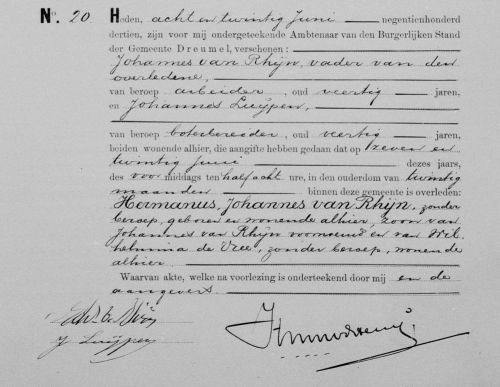 No. 20. Heden, acht en twintig Juni negentienhonderd
dertien, zijn voor mij ondergeteekende Ambtenaar van den Burgerlijken Stand
der Gemeente Dreumel, verschenen:
Johannes van Rhijn, vader van den
overledene,
van beroep arbeider, oud veertig jaren,
en Johannes Luijpen,
van beroep boterbereider, oud veertig jaren,
beiden wonende alhier, die aangifte hebben gedaan dat op zeven en
twintig Juni dezes jaars,
des voormiddags ten half acht ure, in den ouderdom van twintig
maanden binnen deze gemeente is overleden:
Hermanus, Johannes van Rhijn, zonder
beroep, geboren en wonende alhier, zoon van
Johannes van Rhijn voornoemd en van Wil-
helmina de Vree, zonder beroep, wonende
alhier.
Waarvan akte, welke na voorlezing is onderteekend door mij en de
aangevers.
J Luijpen